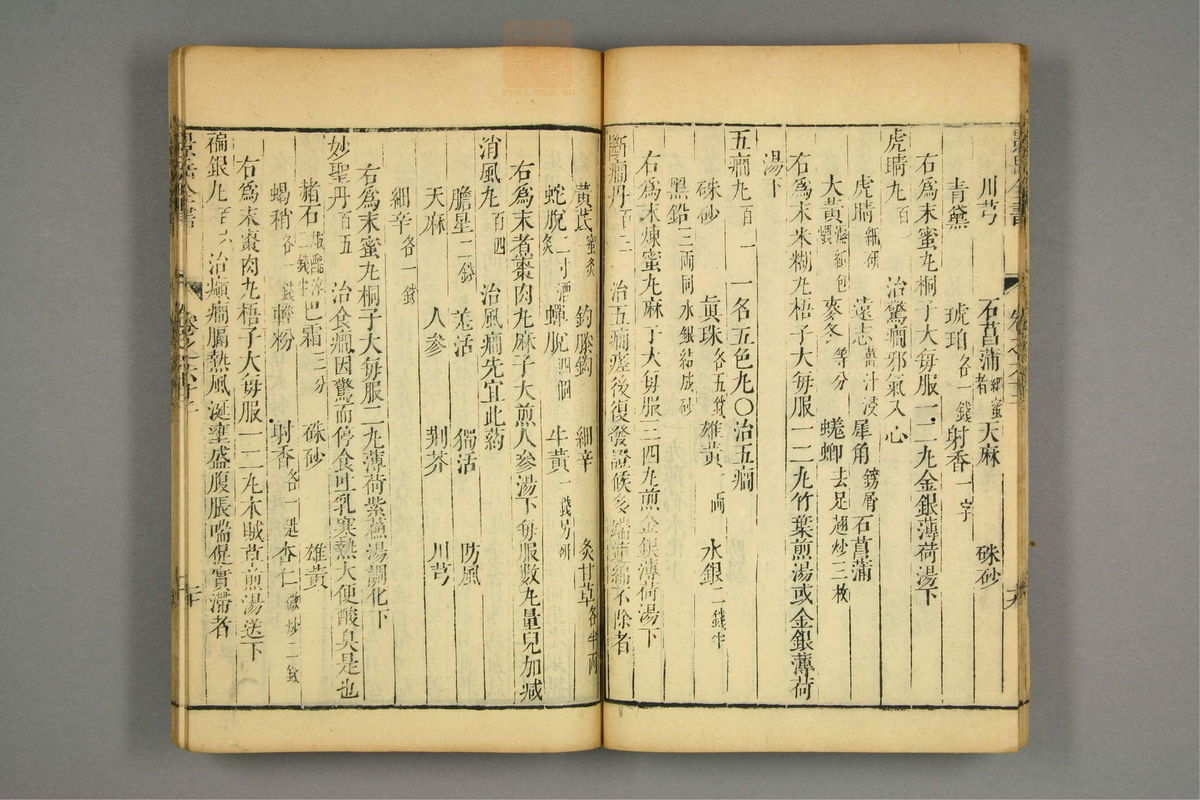 川芎 石菖蒲 天麻 硃砂
青黛 琥珀各一錢 射香一字
右爲末蜜丸桐子大每服一二丸金銀薄荷湯下
虎睛丸百 治驚癎邪氣入心
虎睛細研 遠志薑汁浸 犀角鎊屑 石菖蒲
大黃濕紙包煨 麥冬等分 蜣螂去足翅炒三枚
右爲末米糊丸梧子大每服一二丸竹葉煎湯或金銀薄荷
湯下
五癎丸百一 一名五色丸○治五癎
硃砂 眞珠各五錢 雄黃一兩 水銀二錢半
黑鉛三兩同水銀結成砂
右爲末煉蜜丸麻子大每服三四丸煎金銀薄荷湯下
斷癎丹百三 治五癎瘥後復發證候多端連綿不除者
黃芪蜜炙 鈎籐鈎 細辛 炙甘草各半兩
蛇脫二寸酒炙 蟬脫四個 牛黃一錢另研
右爲末煮棗肉丸麻子大煎人參湯下每服數丸量兒加减
消風丸百四 治風癎先宜此药
膽星二錢 羗活 獨活 防風
天麻 人參 荆芥 川芎
細辛各一錢
右爲末蜜丸桐子大每服二丸薄荷紫蘇湯調化下
妙聖丹百五 治食癎因驚而停食吐乳寒熱大便酸臭是也
赭石煅醋淬二錢半 巴霜三分 硃砂 雄黃
蝎稍各一錢 輕粉 射香各一匙 杏仁微炒二錢
右爲末棗肉丸梧子大每服一二丸木賊草煎湯送下
褊銀丸百六 治癲癎膈熱風涎壅盛腹脹喘促實滯者